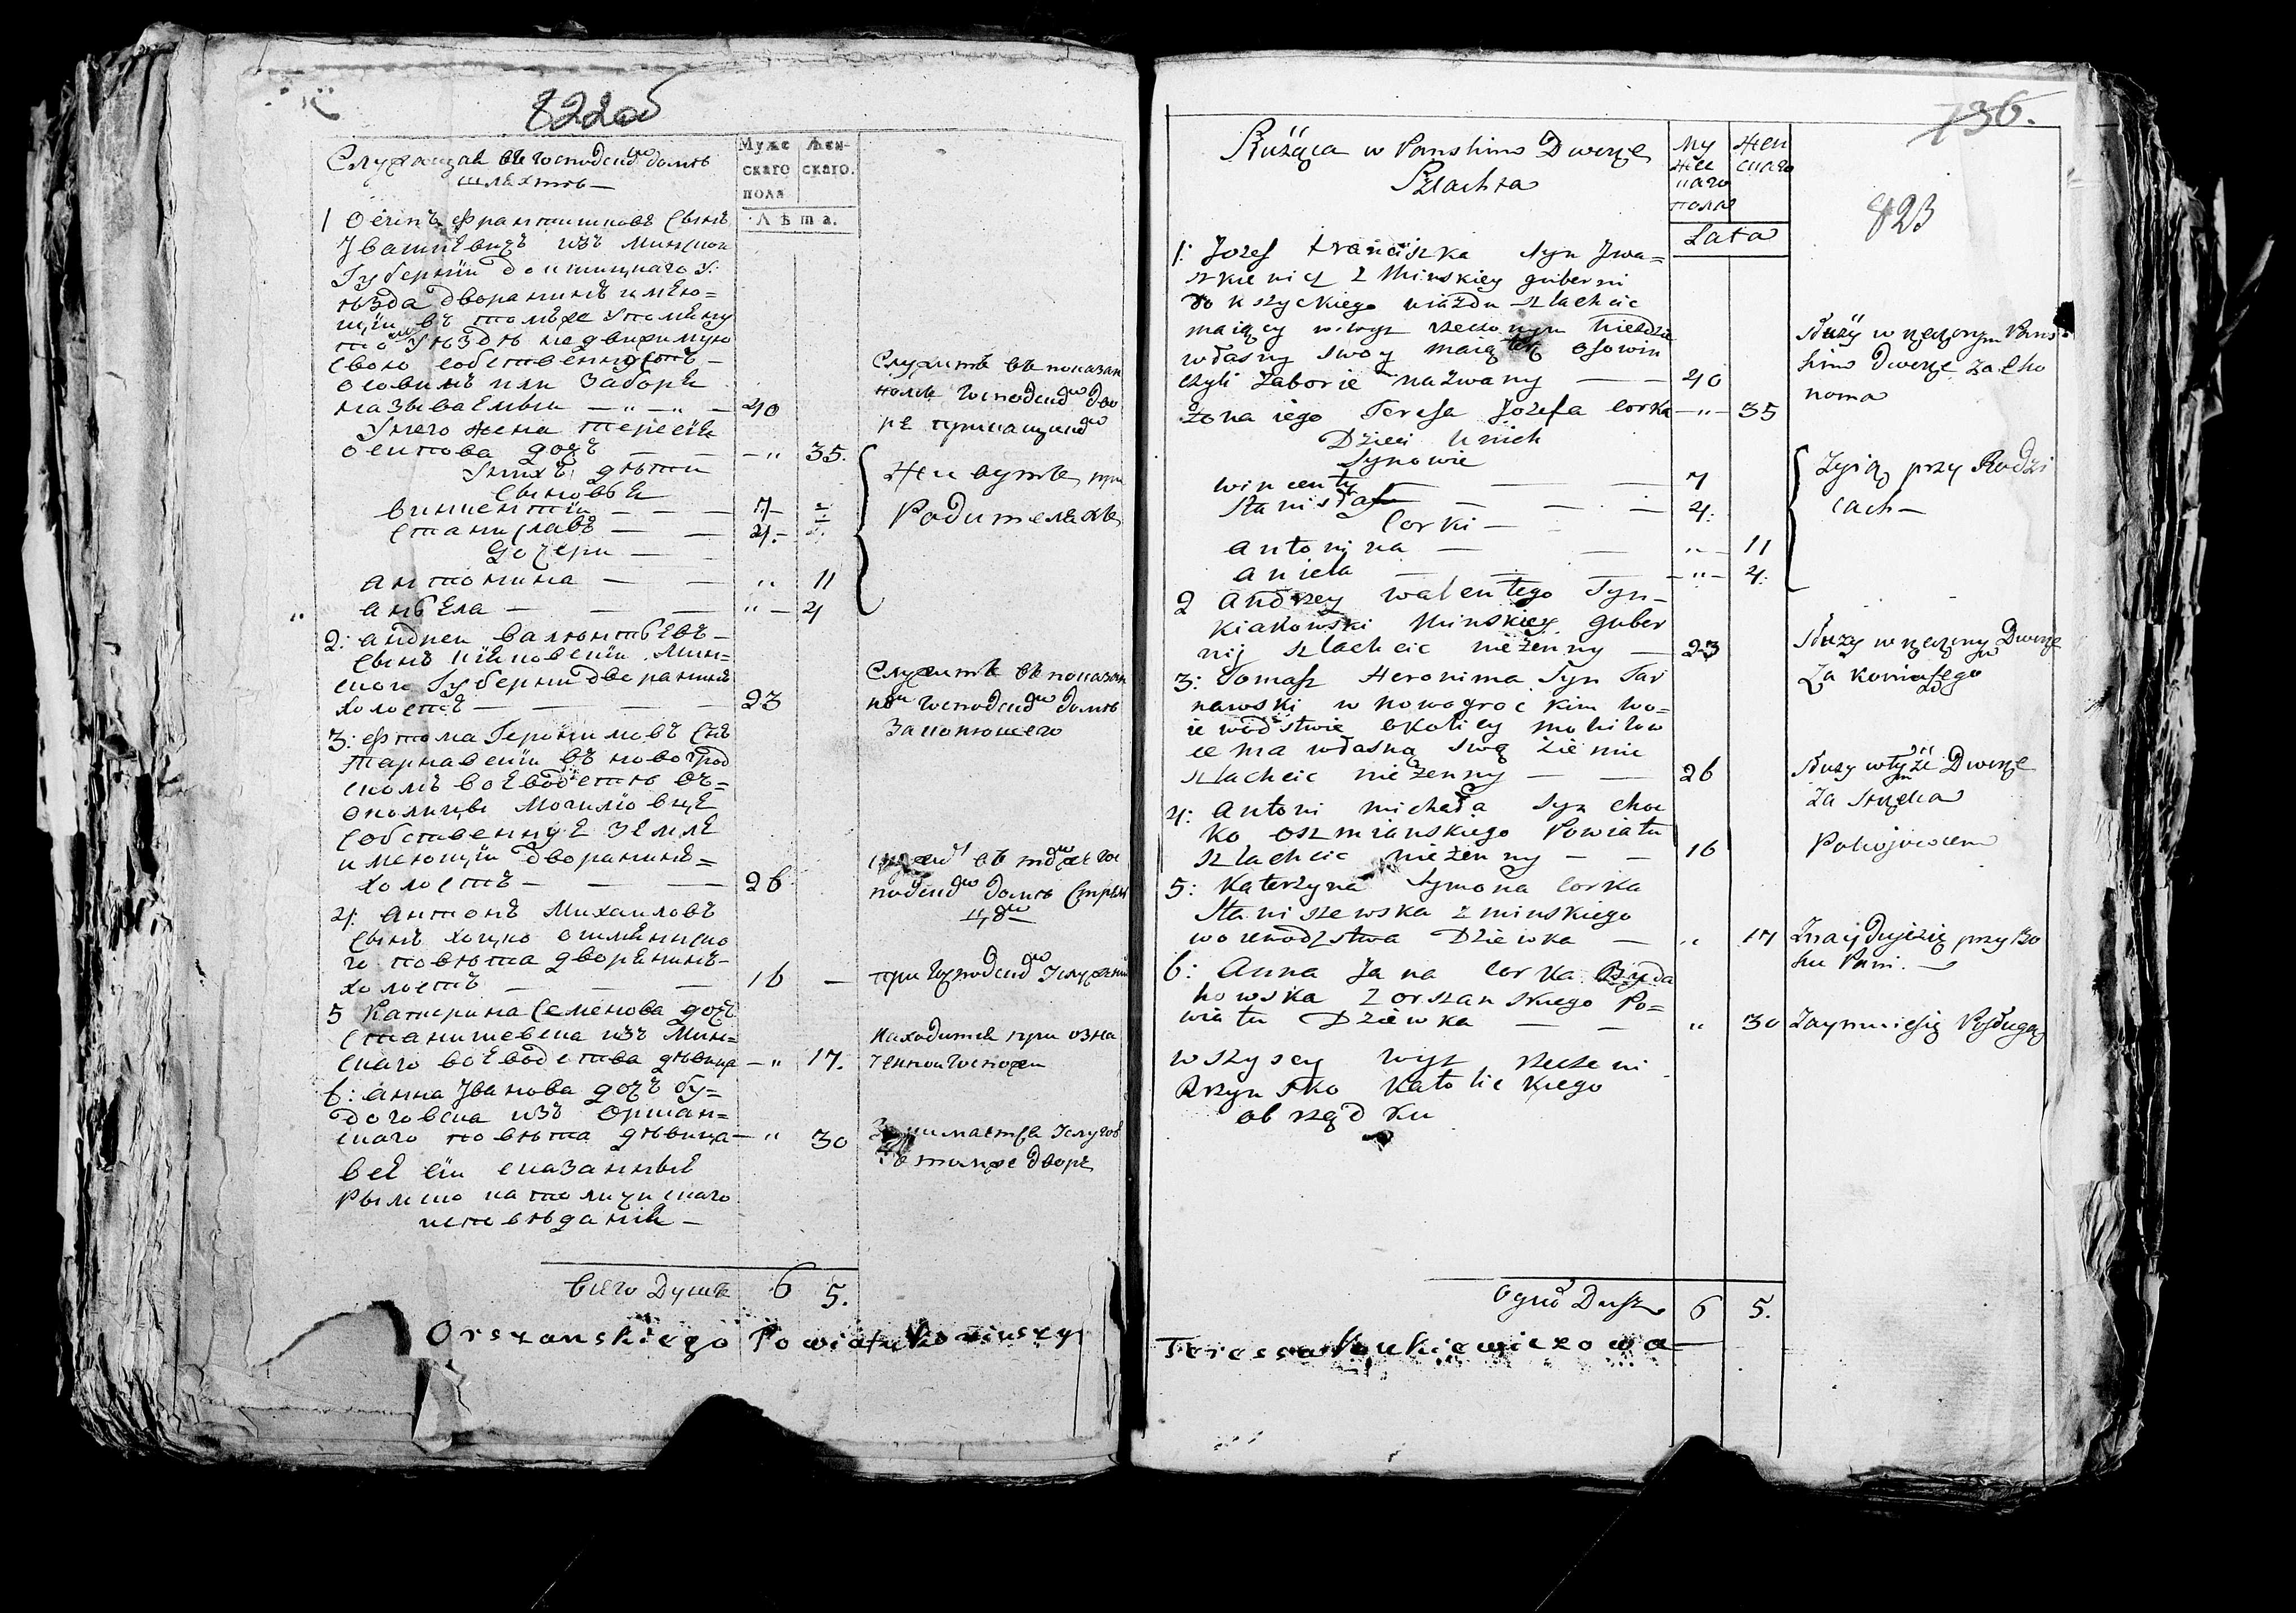 822об
Служащая въ господскомъ домѣ
шляхта
Муже
скаго
пола
Жен-
скаго.
Лѣта.
1 Осипъ Францишковъ сынъ
Ивашкевичъ изъ Минской
Губерніи Докшицкаго У:
ѣзда дворянинъ имѣю=
щій въ
уѣздѣ недвижимую
свою собственность
Осовинъ или Заборье
называемый — „ — „ — 40
У него жена Тереса
Осипова дочь — „ 35.
У нихъ дѣти
сыновья
Винцентій — — — 7 —
Станиславъ — — 4. —
Дочери —
Антонина — — „ 11
Анѣела — — — „ — 4
Служитъ въ показан
номъ господском дво
рѣ
Живутъ при
Родителяхъ
2: Андрей Валентьевъ
сынъ Кіяковскій Мин=
ской Губерніи дворянинъ
холостъ — — — — 23
Служитъ въ показан
ном господском домѣ
За конюшего
3: Фтома Геронимовъ снъ
Тарнавскій въ Новогрод
скомъ воеводствѣ въ=
околицѣ Могилювцѣ
собственную землю
имеющій дворянинъ=
холостъ — — — 26
въ том же го
подском домѣ Стрѣл
цом
4: Антонъ Михаиловъ
сынъ Хоцко Ошмянска
го повѣта дворянинъ
холостъ — — — 16 —
при господском услужен
5 Катерина Семенова дочь
Станишевска изъ Мин=
скаго воеводства дѣвица — „ 17.
находится при озна
ченной госпожи
6: Анна Иванова дочь Бу=
договска изъ Оршан=
скаго повѣта дѣвица — „ 30
Занимается услугов
в томже дворѣ
все сіи сказанные
Рымско католицкаго
исповѣданія —
Всего Душъ 6 5.
Orszanskiego Powiatu Koniuszy
136.
823
Służąca w Panskim Dworze
Szlachta
Му
же
скаго
пола
Жен
скаго
Lata
1: Jozef Franciszka syn Jwa=
szkiewicz z Minskiey guberni
Dokszyckiego uiazdu szlachcic
maiący w wyz rzeczonym Uiezdzie
własny swoy maiątek Osowin
czyli Zaborie nazwany — — 40
Żona iego Teresa Jozefa corka — „ — 35
Dzieci U nich
Synowie
Wincenty — — — 7
Stanisław — — — 4.
Corki —
Antonina — — „ — 11
Aniela — — — — „ — 4.
Służy w rzeczonym Pans=
kim Dworze za Eko
noma
Zyią przy Rodzi
cach —
2 Andrzey Walentego Syn
Kiakowski Minskiey guber
nij szlachcic nieżenny — 23
Służy w rzeczonym Dworze
Za koniuszego
3: Tomasz Heronima Syn Tar
nawski w Nowogrockim wo=
iewodstwie okolicy Mohilow
ce ma własną swą ziemie
szlachcic nieżenny — — 26
Służy w tymże Dworze
Za strzelca
4: Antoni Michała Syn Choc
ko Oszmianskiego Powiatu
szlachcic nieżenny — — 16
Pokojowcem
5: Katerzyna Symona corka
Staniszewska z Minskiego
worewodzstwa Dziewka — „ 17
Znayduje się przy Bo
ku Pani. —
6: Anna Jana corka Buda
howska z Orszanskiego Po=
wiatu Dziewka — — „ 30
Zaymuie się Usługą
wszyscy wyz rzeczeni
Rzymsko Katolickiego
obrządku
Oguł Dusz 6 5.
Teressa Wankiewiczowa